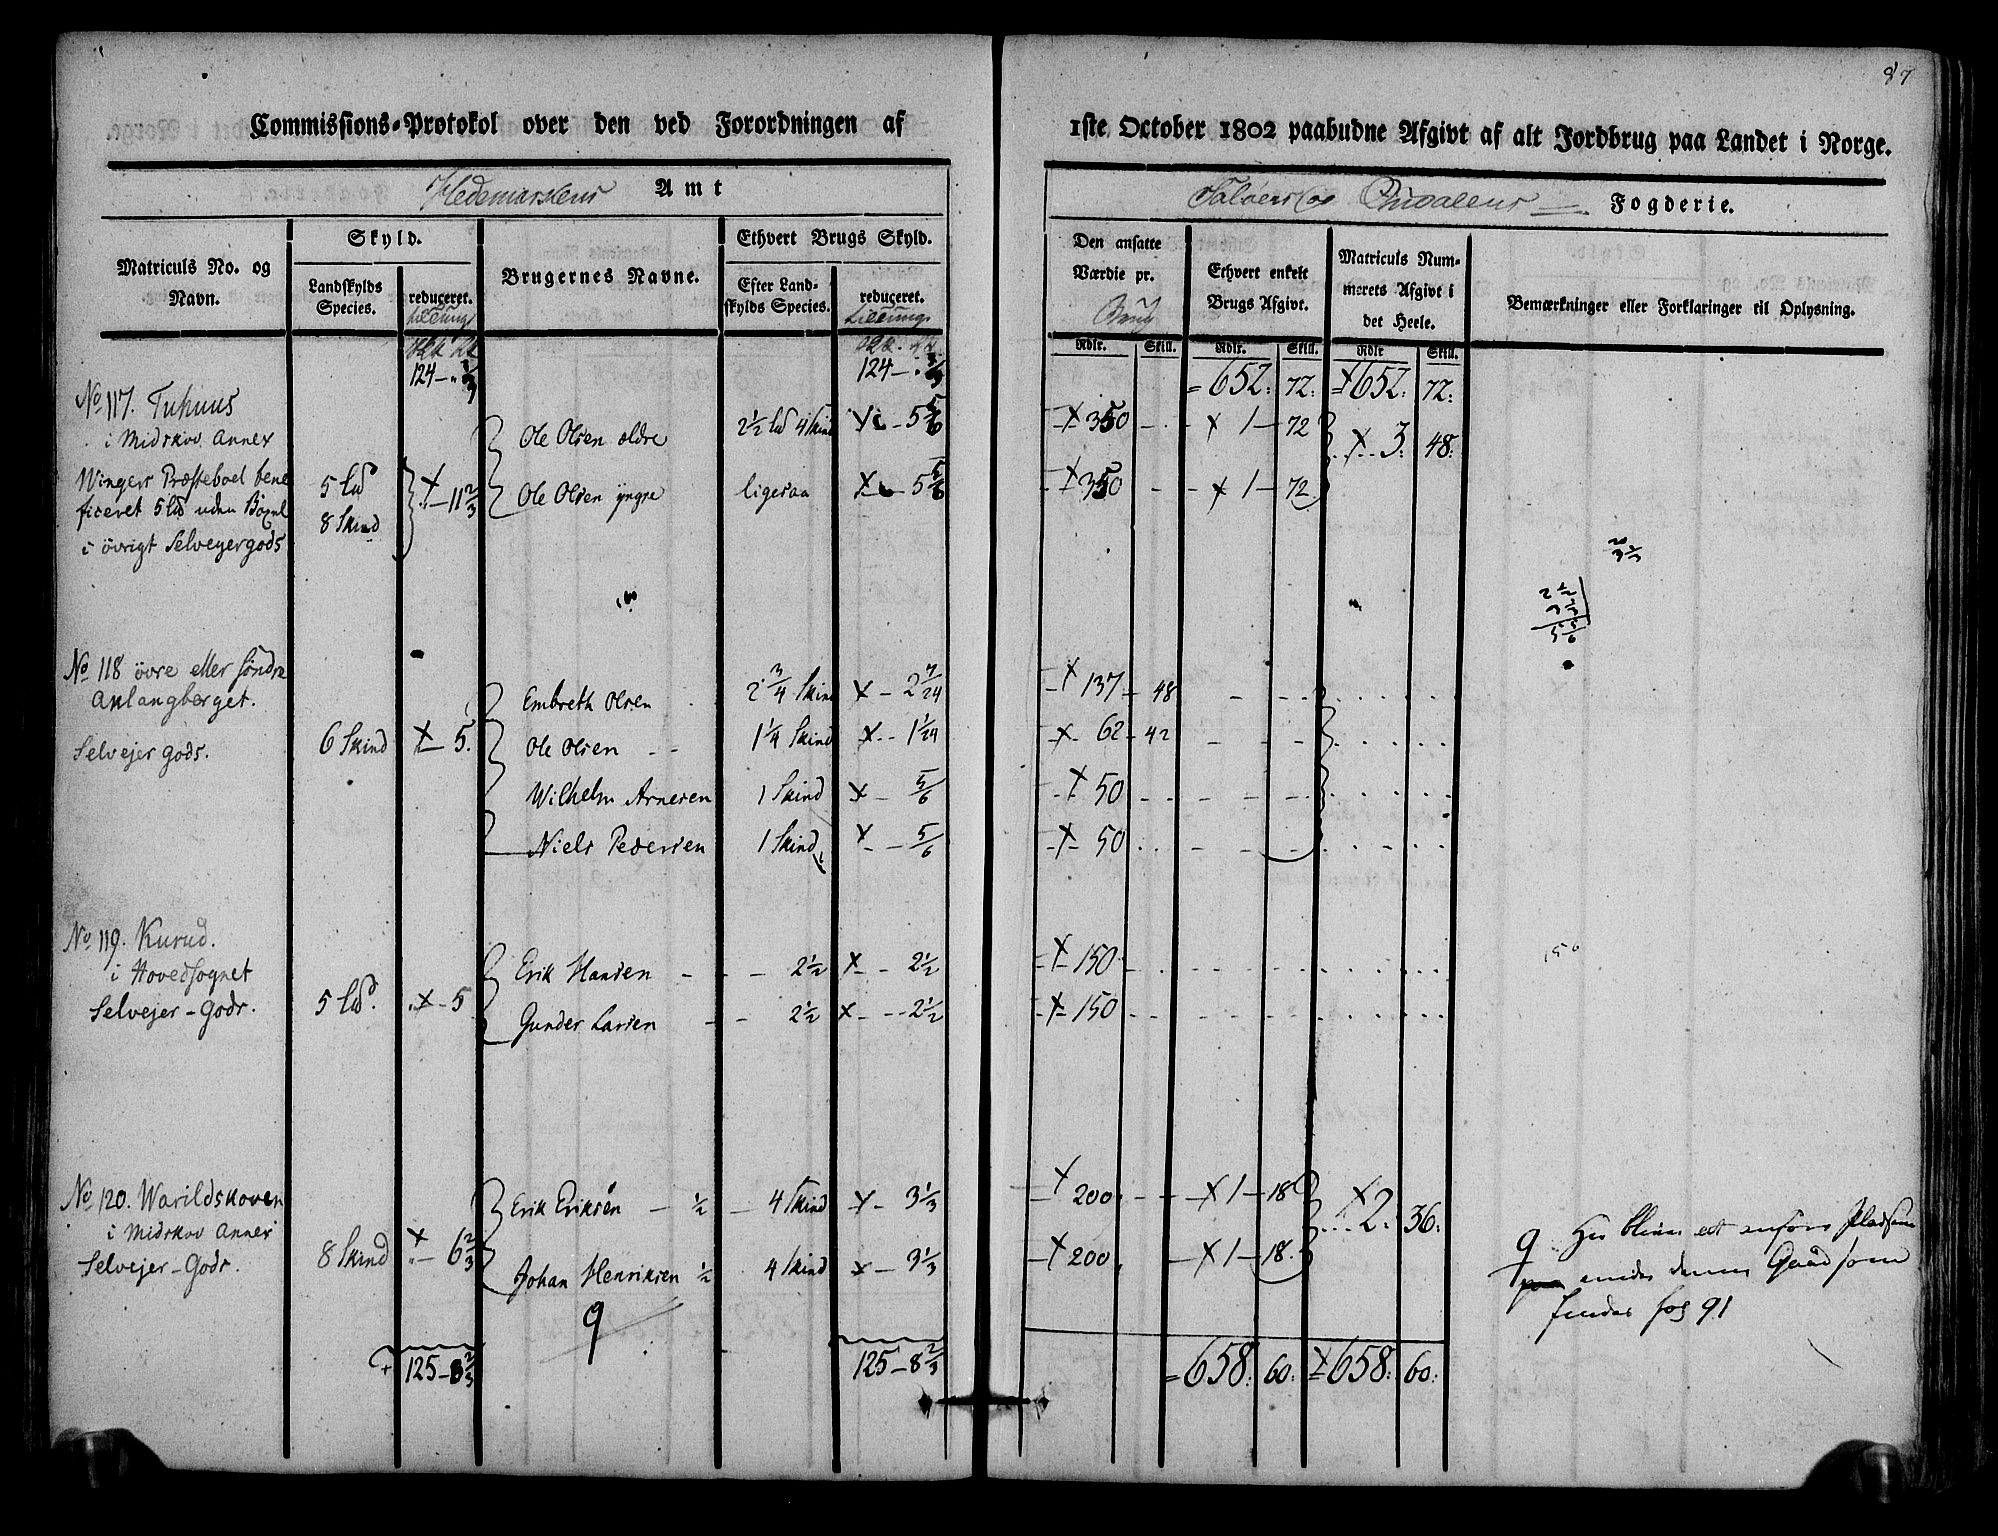 87
Commissions-Protokol over den ved Forordningen af 1ste October 1802 paabudne Afgivt af alt Jordbrug paa Landet i Norge.
Hedemarkens Amt
Soløers og Fogderie.
Matriculs No. og Navn.
Skyld.
Landskylds Species.
reduceret.
Brugernes Navne.
Ethvert Brugs Skyld.
Efter Landskylds Species.
reduceret.
Den ansatte Værdie pr. Brug
Ethvert enkelt Brugs Afgivt.
Matriculs Nummerets Afgivt i det Heele.
Bemærkninger eller Forklaringer til Oplysning.
Rdlr. Skill. Rdlr. Skill. Rdlr Skill.
124 - 124 - = 652: 72: 652: 72:
No 117. Tuhuus
i Midskov Annex
Wingers Præsteboel bene
ficeret 5 Ld uden Bøxel
i övrigt Selveyergods
5 Ld
8 Skind
x - 11 2/3
Ole Olsen ældre 2 1/2 Ld 4 Skind x - 5 5/6 x 350 - x 1 - 72
Ole Olsen yngre ligesaa x - 5 5/6 x 350 - x 1 - 72
x 3. 48:
2 1/2
3 1/3
5 5/6
No 118 övre eller söndre
Anlangberget.
Selvejer gods.
6 Skind x - 5.
Embreth Olsen 2 3/4 Skind x - 2 7/24 x 137 - 48
Ole Olsen 1 1/4 Skind x - 1 1/24 x 62 - 42
Wilhelm Arnesen 1 Skind x - 5/6 x 50
Niels Pedersen 1 Skind x - 5/6 x 50
No 119. Kurud.
i Hovedsognet
Selvejer-Gods.
5 Ld. x - 5
Erik Hansen - 2 1/2 x - 2 1/2 x 150
Gunder Larsen - 2 1/2 x - 2 1/2 x 150
150
No 120. Warildskoven
i Midskov Annex
Selvejer-Gods.
8 Skind x - 6 2/3
Erik Eriksen - 1/2 - 4 Skind x - 3 1/3 x 200 - x 1 - 18
Johan Henriksen 1/2 4 Skind x - 3 1/3 x 200 - x 1 - 18.
x 2. 36:
9
9 Her bliver at anføre Pladsen
under denne Gaard som
findes fol 91
125 - 8 2/3 125 - 8 2/3 = 658. 60: x 658: 60: